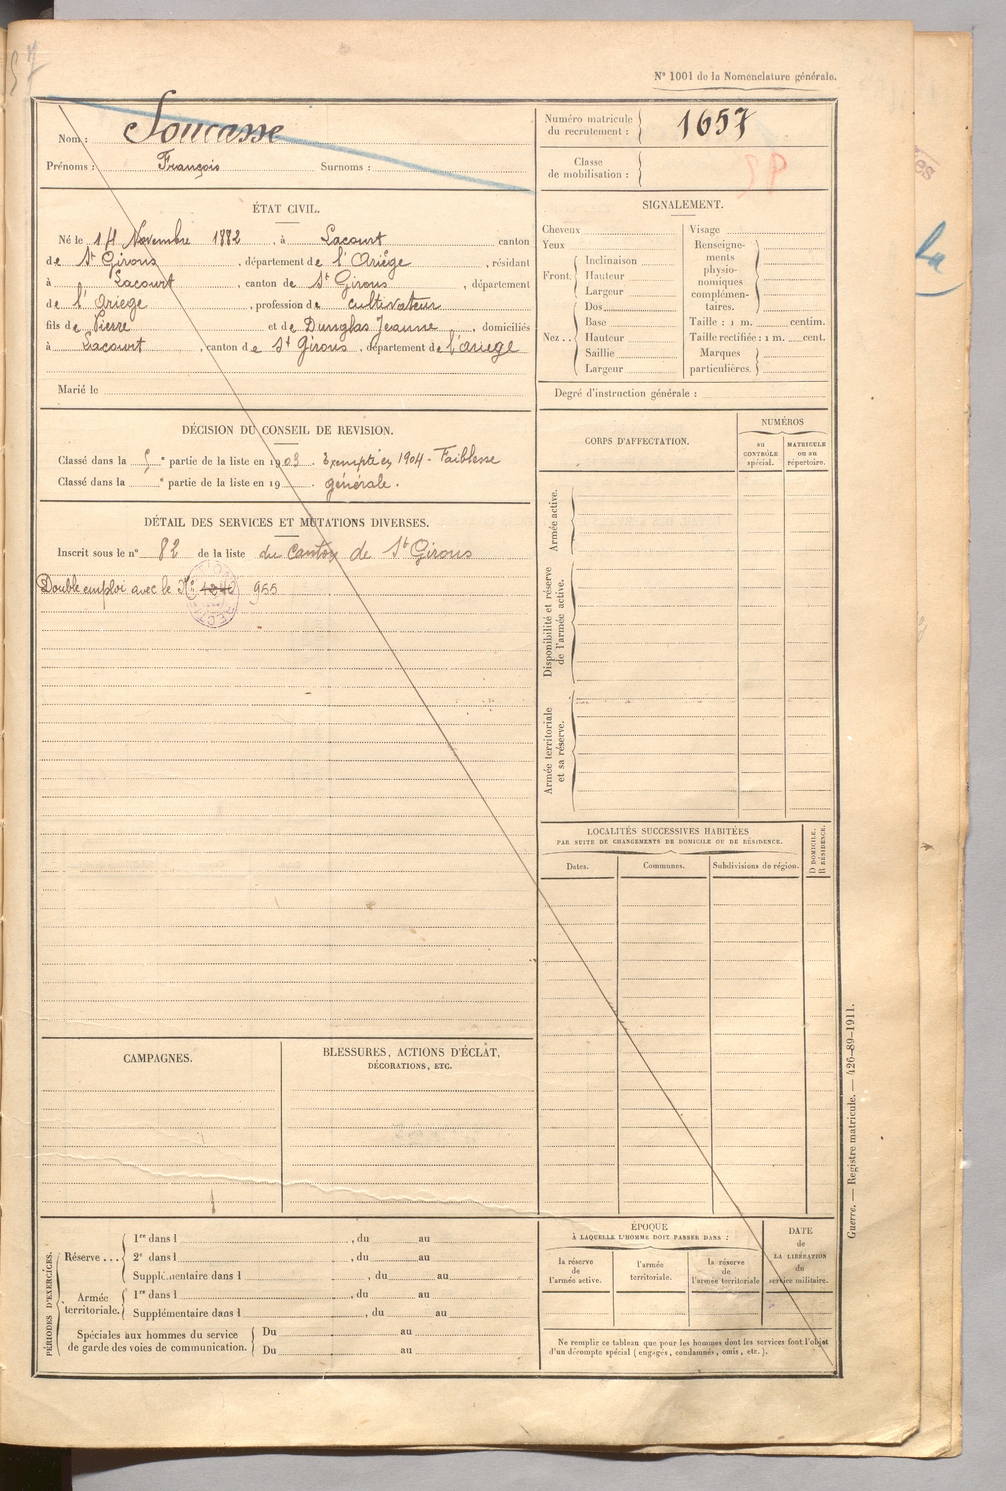 57
N° 1001 de la Nomenclature générale.
Nom : Soucasse
Prénoms : François Surnoms :
Numéro matricule du recrutement : 1657
Classe de mobilisation :
ÉTAT CIVIL.
Né le 14 Novembre 1882, à Lacourt canton
de St Girons, département de l'Ariège, résidant
à Lacourt, canton de St Girons, département
de l'Ariège, profession de cultivateur
fils de Pierre et de Dunglas Jeanne, domiciliés
à Lacourt, canton de St Girons, département de l'Ariège
Marié le
SIGNALEMENT.
Cheveux
Yeux
Front. Inclinaison
Hauteur
Largeur
Nez.. Dos
Base
Hauteur
Saillie
Largeur
Visage
Renseignements physionomiques complémentaires.
Taille : 1 m. centim.
Taille rectifiée : 1 m. cent.
Marques particulières.
Degré d'instruction générale :
DÉCISION DU CONSEIL DE REVISION.
Classé dans la 5e partie de la liste en 1903. Exempté en 1904 - Faiblesse
Classé dans la e partie de la liste en 19 . générale.
DÉTAIL DES SERVICES ET MUTATIONS DIVERSES.
Inscrit sous le n° 82 de la liste du canton de St Girons
Double emploi avec le N° 955
CORPS D'AFFECTATION.
NUMÉROS
au CONTRÔLE spécial.
MATRICULE ou au répertoire.
Armée active.
Disponibilité et réserve de l'armée active.
Armée territoriale et sa réserve.
LOCALITÉS SUCCESSIVES HABITÉES
PAR SUITE DE CHANGEMENTS DE DOMICILE OU DE RÉSIDENCE.
Dates.
Communes.
Subdivisions de région.
D DOMICILE.
R RÉSIDENCE.
CAMPAGNES.
BLESSURES, ACTIONS D'ÉCLAT,
DÉCORATIONS, ETC.
PÉRIODES D'EXERCICES.
Réserve ... 1re dans l , du au
2e dans l , du au
Supplémentaire dans l , du au
Armée territoriale. 1re dans l , du au
Supplémentaire dans l , du au
Spéciales aux hommes du service de garde des voies de communication. Du au
Du au
ÉPOQUE
À LAQUELLE L'HOMME DOIT PASSER DANS :
la réserve de l'armée active.
l'armée territoriale.
la réserve de l'armée territoriale
DATE de LA LIBÉRATION du service militaire.
Ne remplir ce tableau que pour les hommes dont les services font l'objet
d'un décompte spécial (engagés, condamnés, omis, etc.).
Guerre. — Registre matricule. — 426-89-1911.